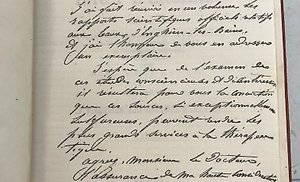 J'ai fait réunir en un volume les
rapports scientifiques officiels relatifs
aux Eaux d'Enghien-les-Bains,
et j'ai l'honneur de vous en adresser
un exemplaire.
J'espère que de l'examen de
ces études consciencieuses et
il résultera pour vous la conviction
que ces sources, si exceptionnellement
sulfureuses, peuvent rendre les
plus grands services à la thérapeu
tique.
agréez, Monsieur le Docteur,
l'assurance de ma haute considération